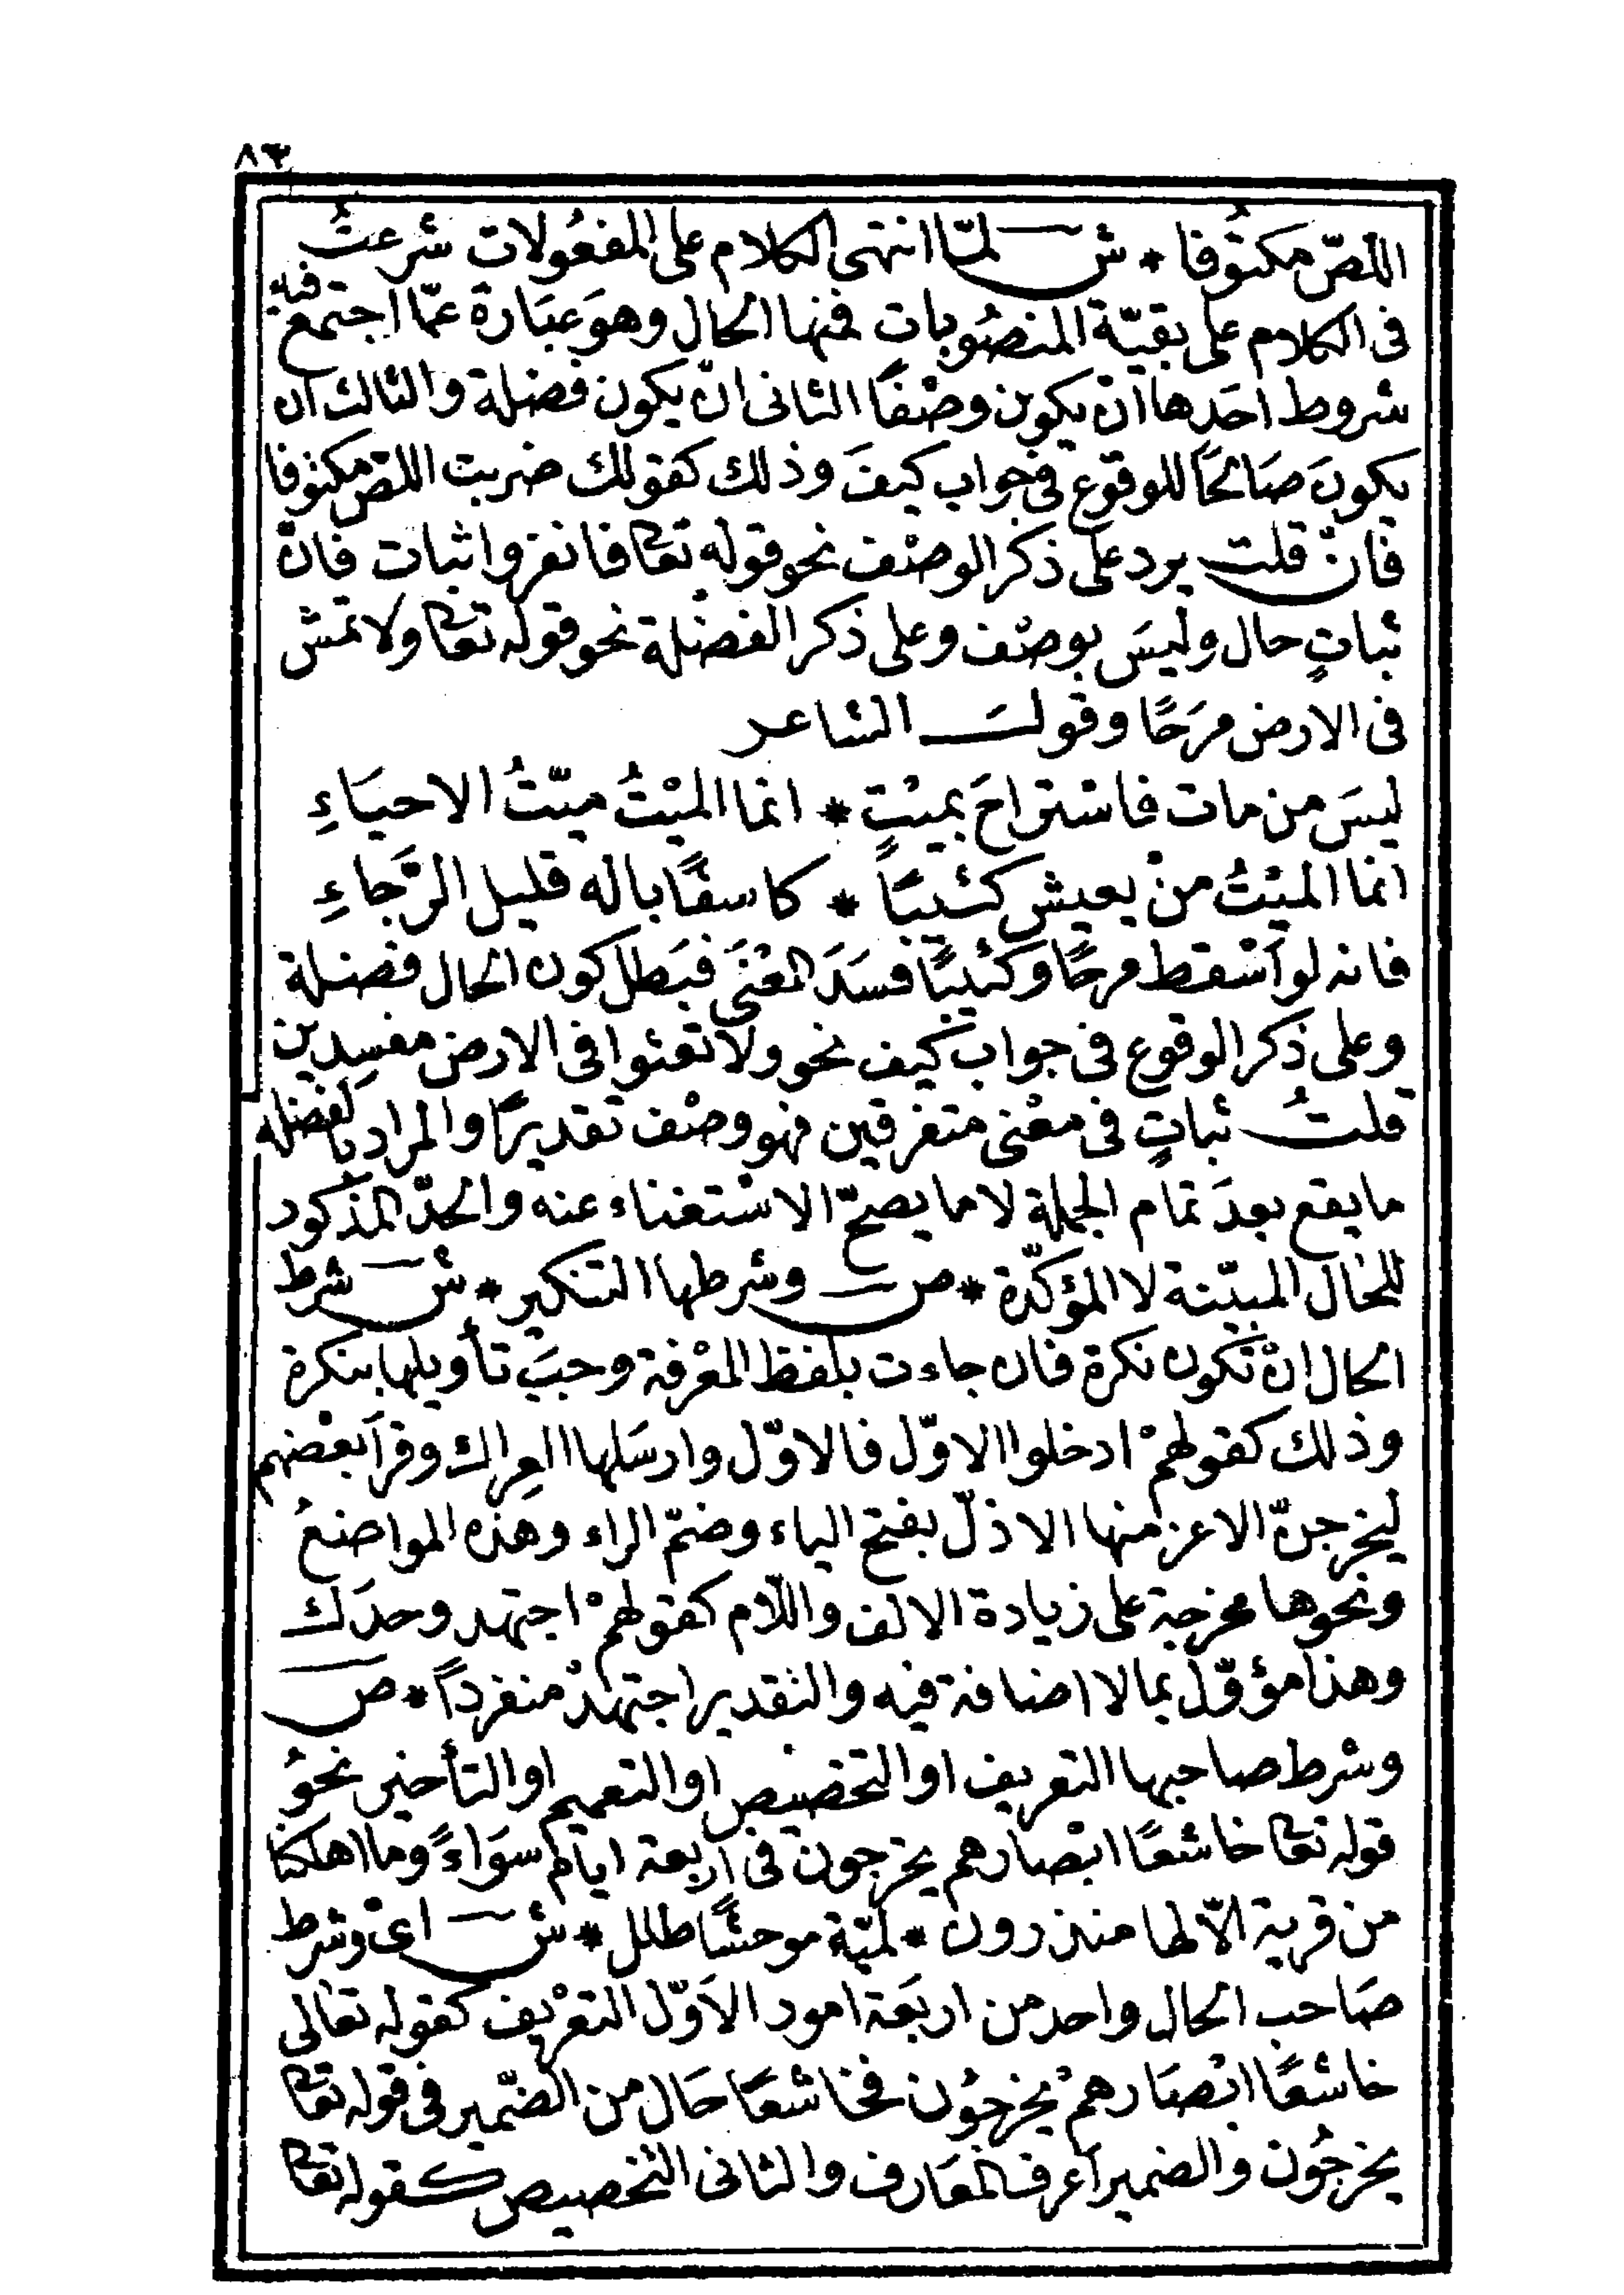 ٨٣
اللصّ مكتُوفا * ش لمّا انتهى الكلام على المفعُولات شرعتُ
فى الكلام على بقيّة المنصُوبات فمنها الحال وهوَ عبَارة عمّا اجتمع فيه
شروط احَدها انْ يكون وصْفًا الثانى انْ يكون فضلة والثالث ان
يكونَ صَالحًا للوقوع فى جواب كيفَ وذلك كقولك ضربت اللص مكتوفا
فانْ قلت يرد على ذكر الوصْف نحو قوله تعا فانفروا ثبات فانّ
ثباتٍ حال وليسَ بوصْف وعلى ذكر الفضْلة نحو قوله تعا ولا تمش
فى الارض مرَحًا وقول الشاعر
ليسَ من مات فاستراحَ بميْتٍ * انما الميْتُ ميّتُ الاحيَاءِ
انما الميْتُ منْ يعيش كئيبًا * كاسفًا باله قليل الرَّجاءِ
فانه لو اسْقط مرحًا وكئيبًا فسَدَ المعْنَى فبَطل كون الحال فضلة
وعلى ذكر الوقوع فى جواب كيف نحو ولا تعثوا فى الارض مفسِدين
قلتُ ثباتٍ فى معْنى متفرقين فهو وصْف تقديرًا والمراد بالفضله
ما يقع بعدَ تمام الجملة لا ما يصحّ الاسْتغناء عنه والحدّ المذكور
للحال المبيّنة لا المؤكّدة * ص وشرطها التنكير * ش شرط
الحال انْ تكون نكرة فان جاءت بلفظ المعْرفة وجبَ تأويلها بنكرة
وذلك كقولهمْ ادخلوا الاوّل فالاوّل وارسَلها العِراك وقرأ بعْضهم
ليَخرجنّ الاعز منها الاذلّ بفتح الياء وضمّ الراء وهذه المواضعُ
ونحوها مخرجة على زيادة الالف واللّام كقولهمْ اجتهد وحدَك
وهذا مؤوّل بما لا اضافة فيه والتقدير اجتهدْ منفردًا * ص
وشرط صاحبها التعريف او التخصيص او التعميم او التأخير نحوُ
قوله تعا خاشعًا ابْصارهم يخرجون فى اربعة ايام سوَاءً وما اهلكنا
من قرية الّا لها منذرون * لميّة موحشًا طلل * ش اىْ وشرط
صَاحب الحال واحد من اربَعة امور الاَوّل التعْريف كقوله تعالى
خاشعًا ابْصَارهمْ يخرجُون فخاشعًا حَال من الضّمير فى قوله تعا
يخرجُون والضمير أعرف المعَارف والثانى التخصيص كقوله تعا